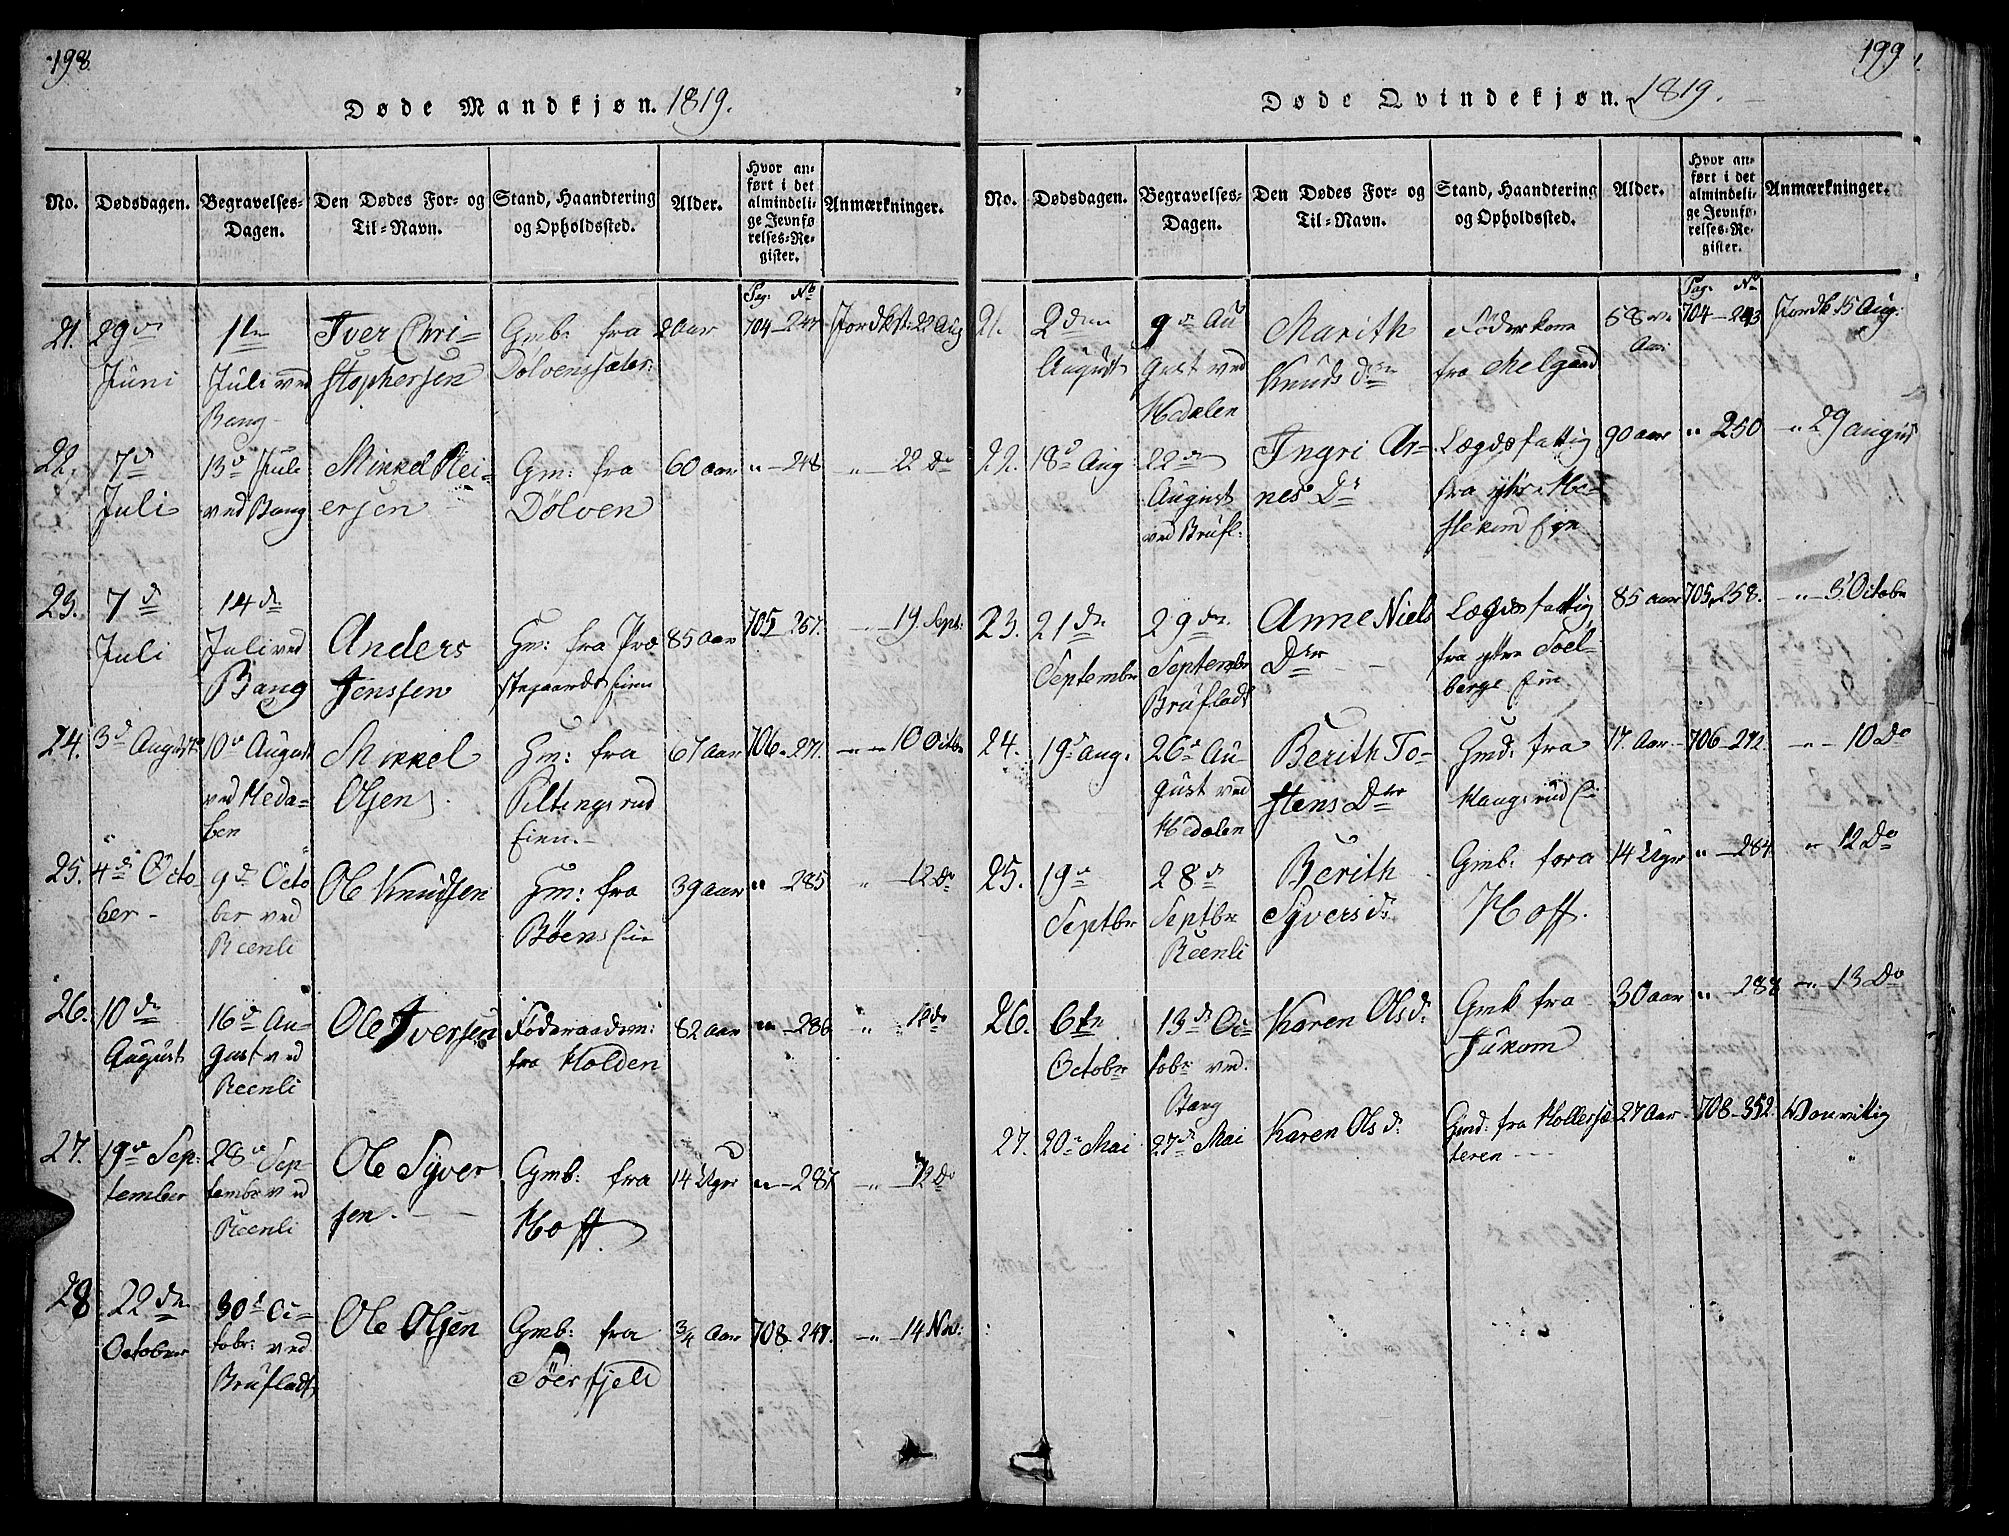 198.
Døde Mandkjøn. 1819.
No. Dødsdagen. Begravelses-Dagen. Den Dødes For- og Til-Navn. Stand, Haandtering og Opholdssted. Alder. Hvor anført i det almindelige Jevnførelses-Register. Anmærkninger.
Pag: No
21. 29de Juni 1te Juli ved Bang Iver Christophersen Gmb: fra Dølvenssæter: 2 aar 704-247 Jordkst: 22 Aug
22. 7de Juli 13de Juli ved Bang Mikkel Reiersen Gm: fra Dölven 60 aar " 248 " 22 Do
23. 7de Juli 14de Juli ved Bang Anders Jenssen Hm: fra Prostegaards Eien 85 aar 705-257. " 19. Sept:
24. 3d August 10d August ved Hedalen Mikkel Olsen Hm: fra Piltingsrud Eien. 67 aar 706-271. " 10 Octbr
25. 4de October 9de October ved Reenli Ole Knudsen Hm: fra Böens Eie 39 aar " 285 " 12 Do
26. 10de August 16d August ved Reenli Ole Iversen Föderaadsm: fra Holden 82 aar " 286 " 12 do
27. 19d September 28d Septembr ved Reenli Ole Syversen. Gmb: fra Hoff. 14 Uger " 287 " 12 Do
28 22de October 30d Octobr: ved Brufladt Ole Olsen Gmb: fra Söerfjeld 3/4 Aar 708-247. " 14 Nov:
199
Døde Qvindekjøn. 1819.
No. Dødsdagen. Begravelses-Dagen. Den Dødes For- og Til-Navn. Stand, Haandtering og Opholdssted. Alder. Hvor anført i det almindelige Jevnførelses-Register. Anmærkninger.
Pag. No
21. 2den August 9de August ved Hedalen Marith Knudsdr Föderkone fra Melgaard 58 Aar 704-243 Jordk: 15 Aug:
22. 18d Aug 22de August ved Brufl: Ingri Arnes Dr Lægdsfattig fra ytre Eie 90 aar " 250 " 29 august
23. 21de September 29de September Brufladt Anne Niels Dtr Lægdsfattig fra ytre Eie 85 aar 705,258. " 3' Octobr
24. 19d aug. 26d August ved Hedalen Berith Tostens Dtr Gmd: fra Haugsrud Ei 17. Aar 706-272. " 10 Do
25. 19de Septbr 28de Septbr Reenli Berith Syversd: Gmb: fora Hoff. 14 Uger " 284 " 12 Do
26. 6te Octobr 13de Octobr ved Bang Karen Olsd: Gmk fra Jukam 30 aar " 288 " 13 Do
27. 20de Mai 27d Mai Karen Olsd: Gmd: fra Hollersæteren 27 Aar 708-352. Vanvittig